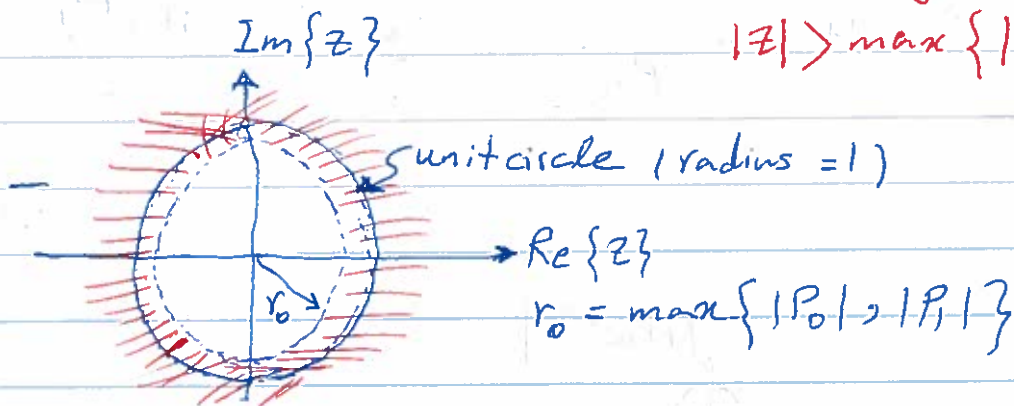 Im{z}
|z| > max {|
unit circle (radius = 1)
Re{z}
r₀
r₀ = max{|P₀|, |P₁|}